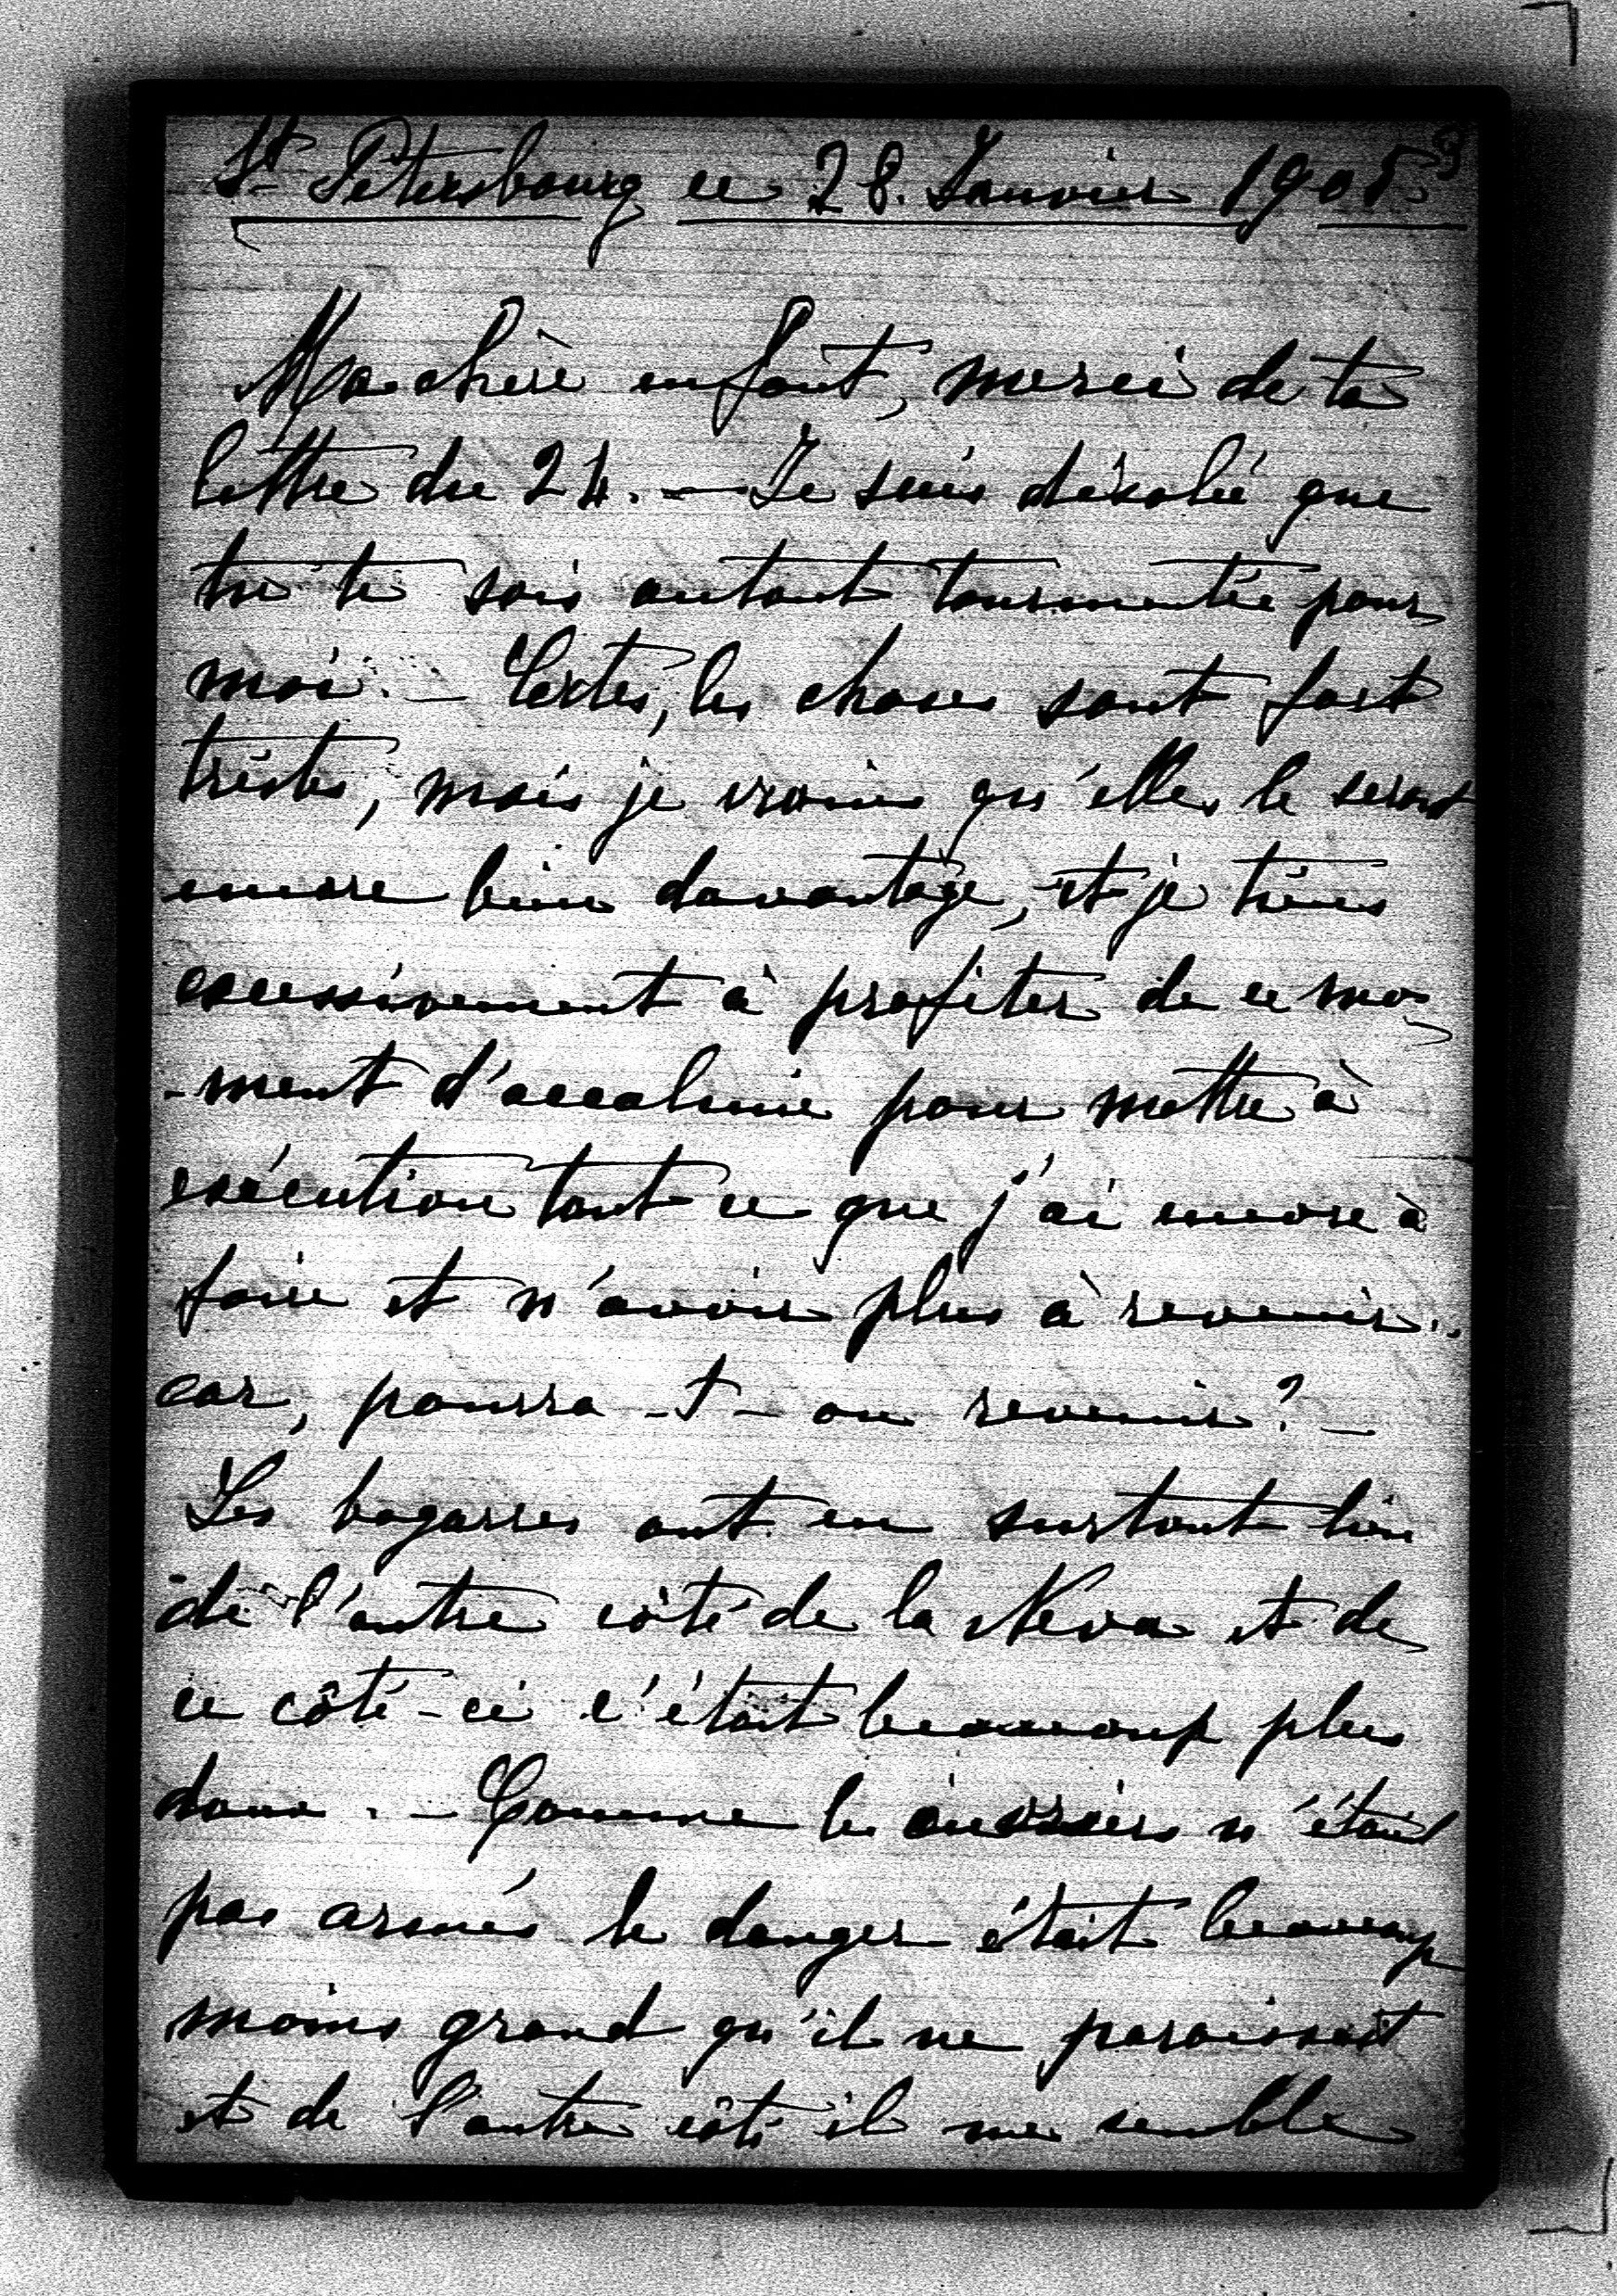 St Pétersbourg ce 28. Janvier 1905.
Ma chère enfant, merci de ta
lettre du 24. — Je suis désolé que
tu te sois autant tourmentée pour
moi. — Certes, les choses sont fort
tristes, mais je crains qu'elles le seront
encore bien davantage, et je tiens
excessivement à profiter de ce mo-
-ment d'accalmie pour mettre à
exécution tout ce que j'ai encore à
faire et n'avoir plus à revenir..
car, pourra-t-on revenir? —
Les bagarres ont eu surtout lieu
de l'autre côté de la Neva et de
ce côté-ci c'était beaucoup plus
doux. — Comme les n'étaient
pas armés le danger était beaucoup
moins grand qu'il ne paraissait
et de l'autre côté il me semble